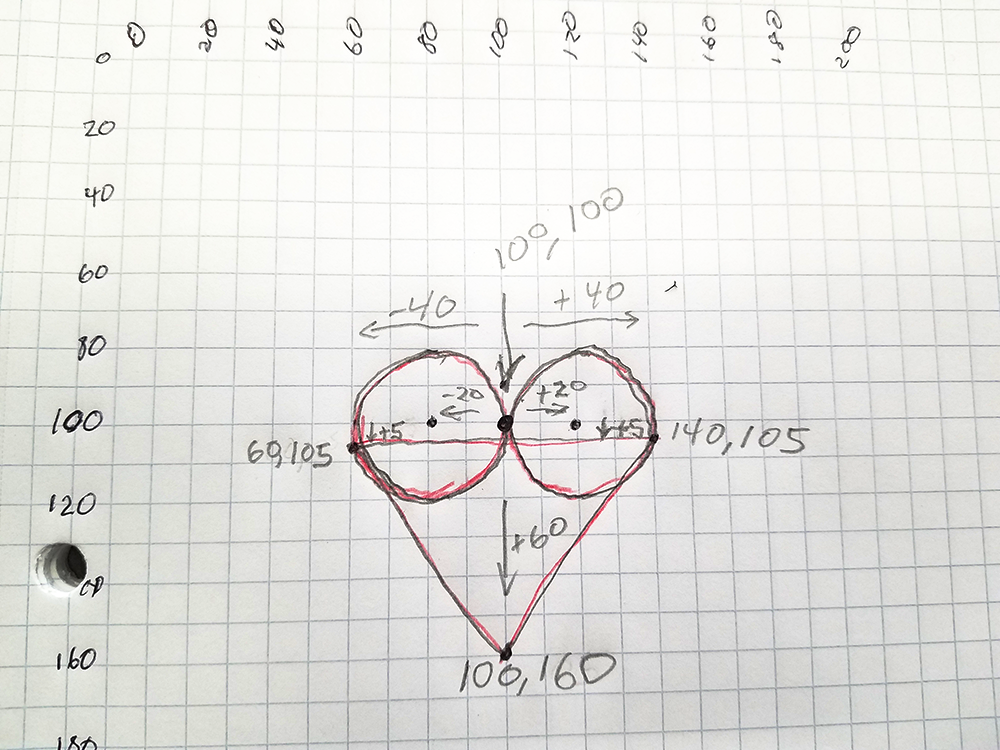 0 20 40 60 80 100 120 140 160 180 200
0
20
40
60
80
100
120
160
180
100,100
-40 +40
-20 +20
↓+5 ↓+5
60,105 140,105
+60
100,160